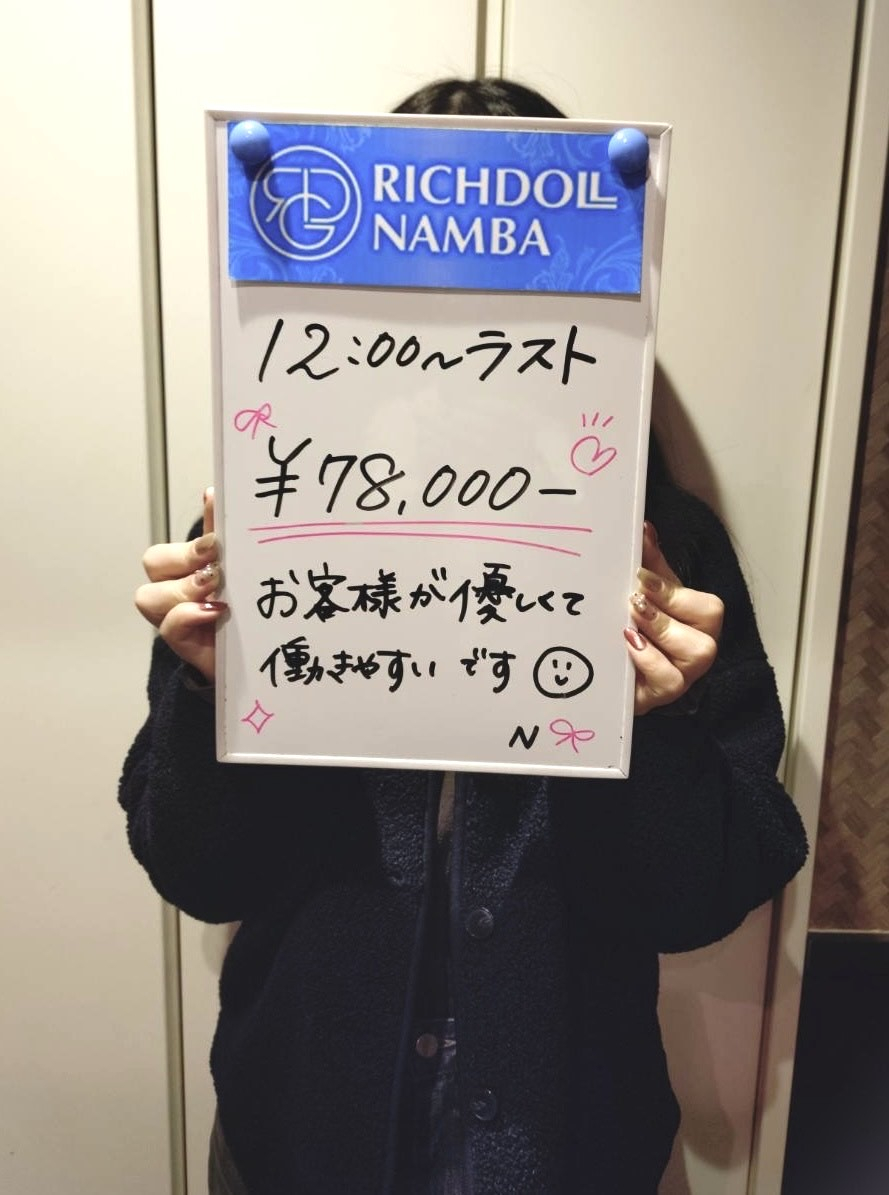 RICHDOLL
NAMBA
12:00～ラスト
¥78,000-
お客様が優しくて
働かきやすいです
N